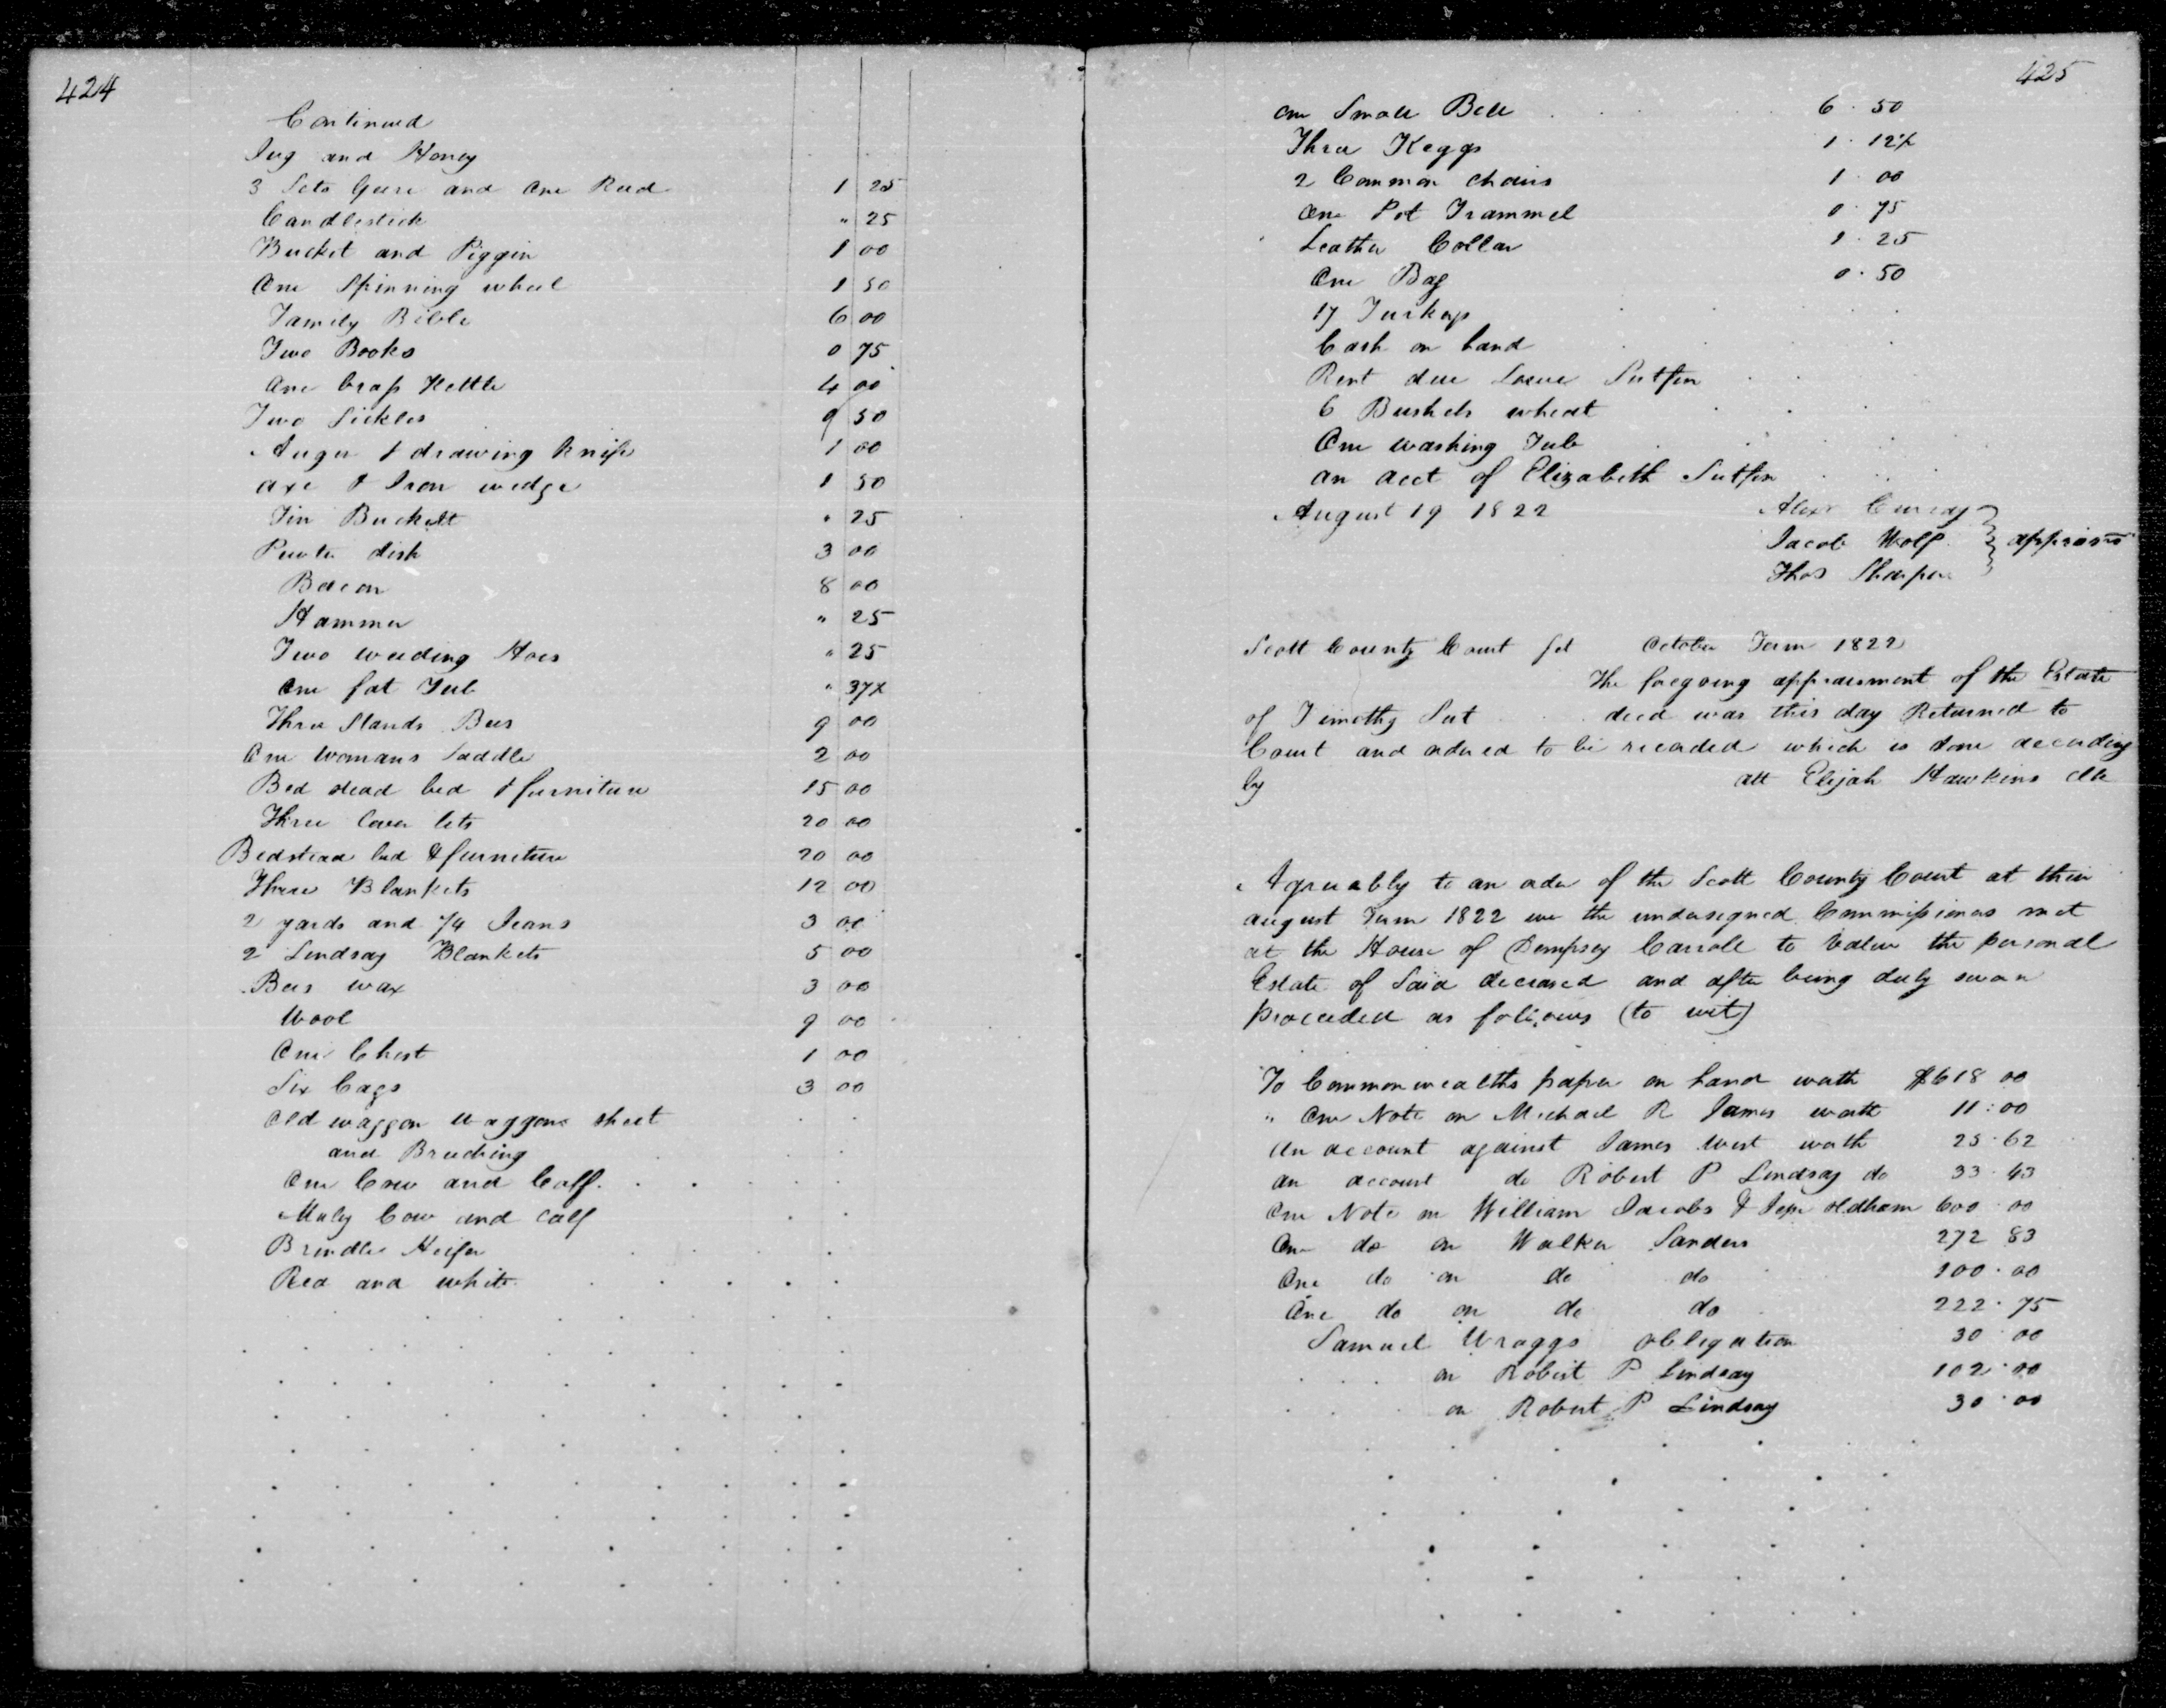 424
Continued
Jug and Honey
3 Sets Geere and One Reed 1 25
Candlestick " 25
Bucket and Piggin 1 00
One Spinning wheel 1 50
Family Bible 6 00
Two Books 0 75
One brass Kettle 4 00
Two Sickles 9 50
Auger & drawing knife 1 00
axe & Iron wedge 1 50
Tin Buckett " 25
Pewter dish 3 00
Bacon 8 00
Hammer " 25
Two weeding Hoes " 25
One fat Tub " 37½
Three Stands Bees 9 00
One womans Saddle 2 00
Bed stead bed & furniture 15 00
Three Cover lets 20 00
Bedstead bed & furniture 20 00
Three Blankets 12 00
2 yards and ¾ Jeans 3 00
2 Lindsay Blankets 5 00
Bees wax 3 00
Wool 9 00
One Chest 1 00
Six bags 3 00
Old waggon waggons sheet
and Breeching
One Cow and Calf
Muly Cow and calf
Brindle Heifer
Red and white
425
one Small Bell 6 50
Three Keggs 1 12½
2 Common chairs 1 00
One Pot Trammel 0 75
Leather Collar 1 25
One Bag 0 50
17 Turkeys
Cash on hand
Rent due Sutfin
6 Bushels wheat
One washing Tub
an acct of Elizabeth Sutfin
August 19 1822 Alexr
Jacob Wolf appraisrs
Thos Sharpe
Scott County Court Sct October Term 1822
The foregoing appraisment of the Estate
of Timothy Sut decd was this day Returned to
Court and ordered to be recorded which is done according
ly att Elijah Hawkins clk
Agreeably to an order of the Scott County Court at their
august Term 1822 we the undersigned Commissioners met
at the House of Dempsey Carroll to value the personal
Estate of Said deceased and after being duly sworn
proceeded as follows (to wit)
To Commonwealths paper on hand worth $618 00
" One Note on Michael R James worth 11 00
An account against James West worth 25 62
an account do Robert P Lindsay do 33 43
One Note on William Jacobs & Jesse Oldham 600 00
One do on Walker Sanders 272 83
One do on do do 100 00
One do on do do 222 75
Samuel Wraggs obligation 30 00
on Robert P Lindsay 102 00
on Robert P Lindsay 30 00